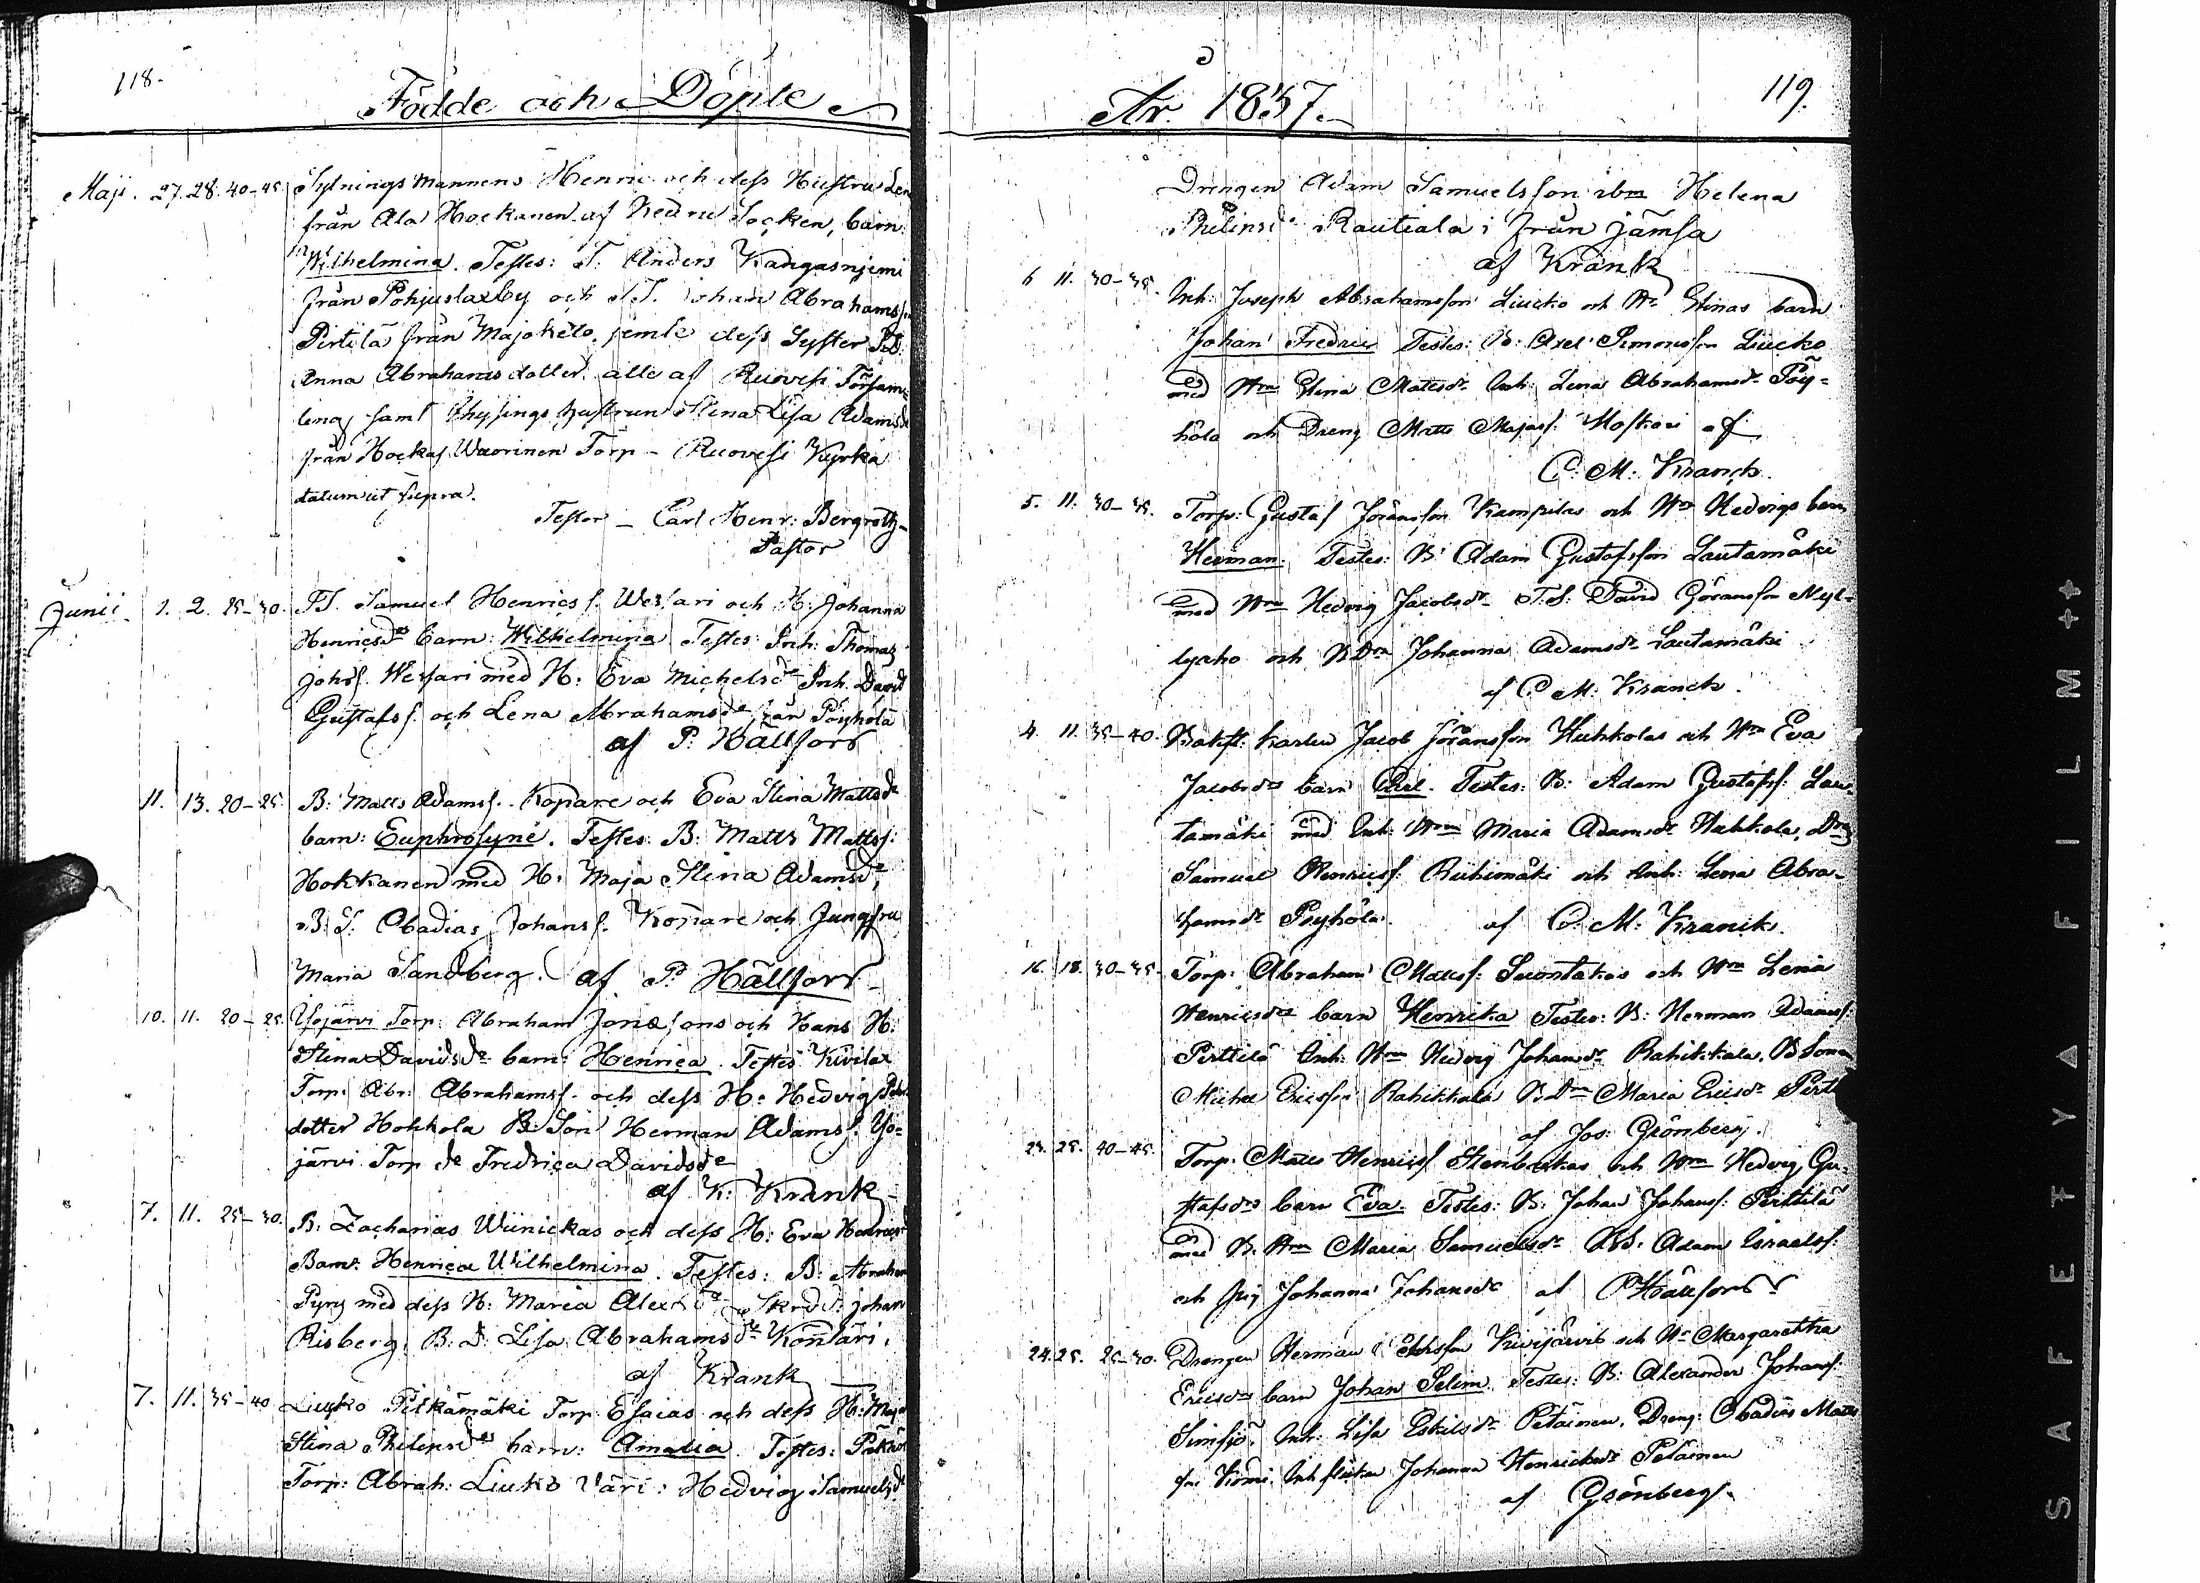 118.
Födde och Döpte
Maji. 27. 28. 40-45. Sytningsmannens Henric och dess Hustru Len
från Ala Hockanen af Keuru Socken, barn:
Wilhelmina. Testes: T: Anders Kangasnjemi
från Pohjuslaxby och T.S. Johan Abrahamss
Pertilä från Majokelo, jemte dess Syster
Anna Abrahams dotter. alle af Ruovesi Försam-
ling samt Stina Lisa Adamsdr
från Hockas Wuorinen Torp - Ruovesi Kyrka
datum ut supra.
Tester - Carl Henr: Bergroth-
Pastor
Junii. 1. 2. 25-30. TS. Samuel Henrics s. Wessari och H: Johanna
Henricsdrs barn: Wilhelmina Testes: Inh: Thomas
Johs s. Wessari med H: Eva Michelsdr Inh. David
Gustafs s. och Lena Abrahamsdr från Pöyhölä
af P. Hällfors
11. 13. 20-25. B: Matts Adams s. Kopare och Eva Stina Mattsdr
barn: Euphrosyne. Testes: B: Matts Matts s:
Hokkanen med H: Maja Stina Adamsdr,
B:S: Obadias Johans s. Kopare och Jungfru
Maria Sandberg. af P. Hällfors
10. 11. 20-25. Yöjärvi Torp: Abraham Jonæsons och Hans H:
Stina Davidsdr barn: Henrica. Testes: Kivilax
Torp: Abr: Abrahams s. och dess H: Hedvig
dotter Hokkola B: Son Herman Adams s. Yö-
järvi Torp dr Fredrica Davidsdr
af K: Krank
7. 11. 25-30. B: Zacharias Wiinickas och dess H: Eva Henricsdr
Barn: Henrica Wilhelmina. Testes: B: Abraham
Pyry med dess H: Maria Alexdr Skrdd: Johan
Risberg. B: D: Lisa Abrahamsdr Kontäri.
af Krank
7. 11. 35-40 Liucko Pitkämäki Torp: Esaias och dess H: Maja
Stina Philipsdrs barn: Amalia. Testes:
Torp: Abrah: Liuko Väri: Hedvig Samuelsdr
År 1837.
119.
Drengen Adam Samuelsson ibm Helena
Philipsdr Rautiala; från Jämsä
af Krank
6 11. 30-35. Inh: Joseph Abrahamsson Liucko och Hu Stinas barn
Johan Fredric Testes: B: Axel Simonsson Liucko
med Hun Stina Mattsdr Inh: Lena Abrahamsdr Pöy-
hölä och Dreng Matts Majass: af
C: M: Kranck.
5. 11. 30-35. Torp: Gustaf Göransson Kampilas och Hu Hedvigs barn
Herman. Testes: B: Adam Gustafsson Lautamäki
med Hun Hedvig Jacobsdr T.S: David Göransson Myl-
lyaho och BDn Johanna Adamsdr Lautamäki
af C: M: Kranck.
4. 11. 35-40. Bakst: Karlen Jacob Göransson Huhkolas och Hun Eva
Jacobsdrs barn Carl. Testes: B: Adam Gustafss: Lau-
tamäki med Inh: Hun Maria Adamsdr Huhkola, Drg
Samuel Henricss: Ruhimäki och Inh: Lena Abra-
hamsdr Pöyhölä. af C: M: Kranck.
16. 18. 30-35. Torp: Abraham Mattss: Suontakas och Hun Lena
Henricsdrs barn Henrika Testes: B: Herman Adamss:
Perttilä Inh: Hun Hedvig Johansdr Rahikkala, B Sonen
Michel Ericsson Rahikkala B.Dn Maria Ericsdr Pertt
af Jos: Grönberg.
23. 25. 40-45. Torp: Matts Henricss Stenbackas och Hun Hedvig Gu-
stafsdrs barn Eva. Testes: B: Johan Johanss: Perttilä
med B. Hun Maria Samuelsdr BS: Adam Israelss:
och Pig Johanna Johansdr af P Hällfors
24. 25. 25-30. Drengen Herman Kivijärvis och Hu Margaretha
Ericsdrs barn Johan Selim. Testes: B: Alexander Johanss:
Sinisjö, Inh: Lisa Eskilsdr Petäinen, Dreng: Obadias Matts
son Inh flickan Johanna Henricsdr Petäinen
af Grönberg.
SAFETY A FILM